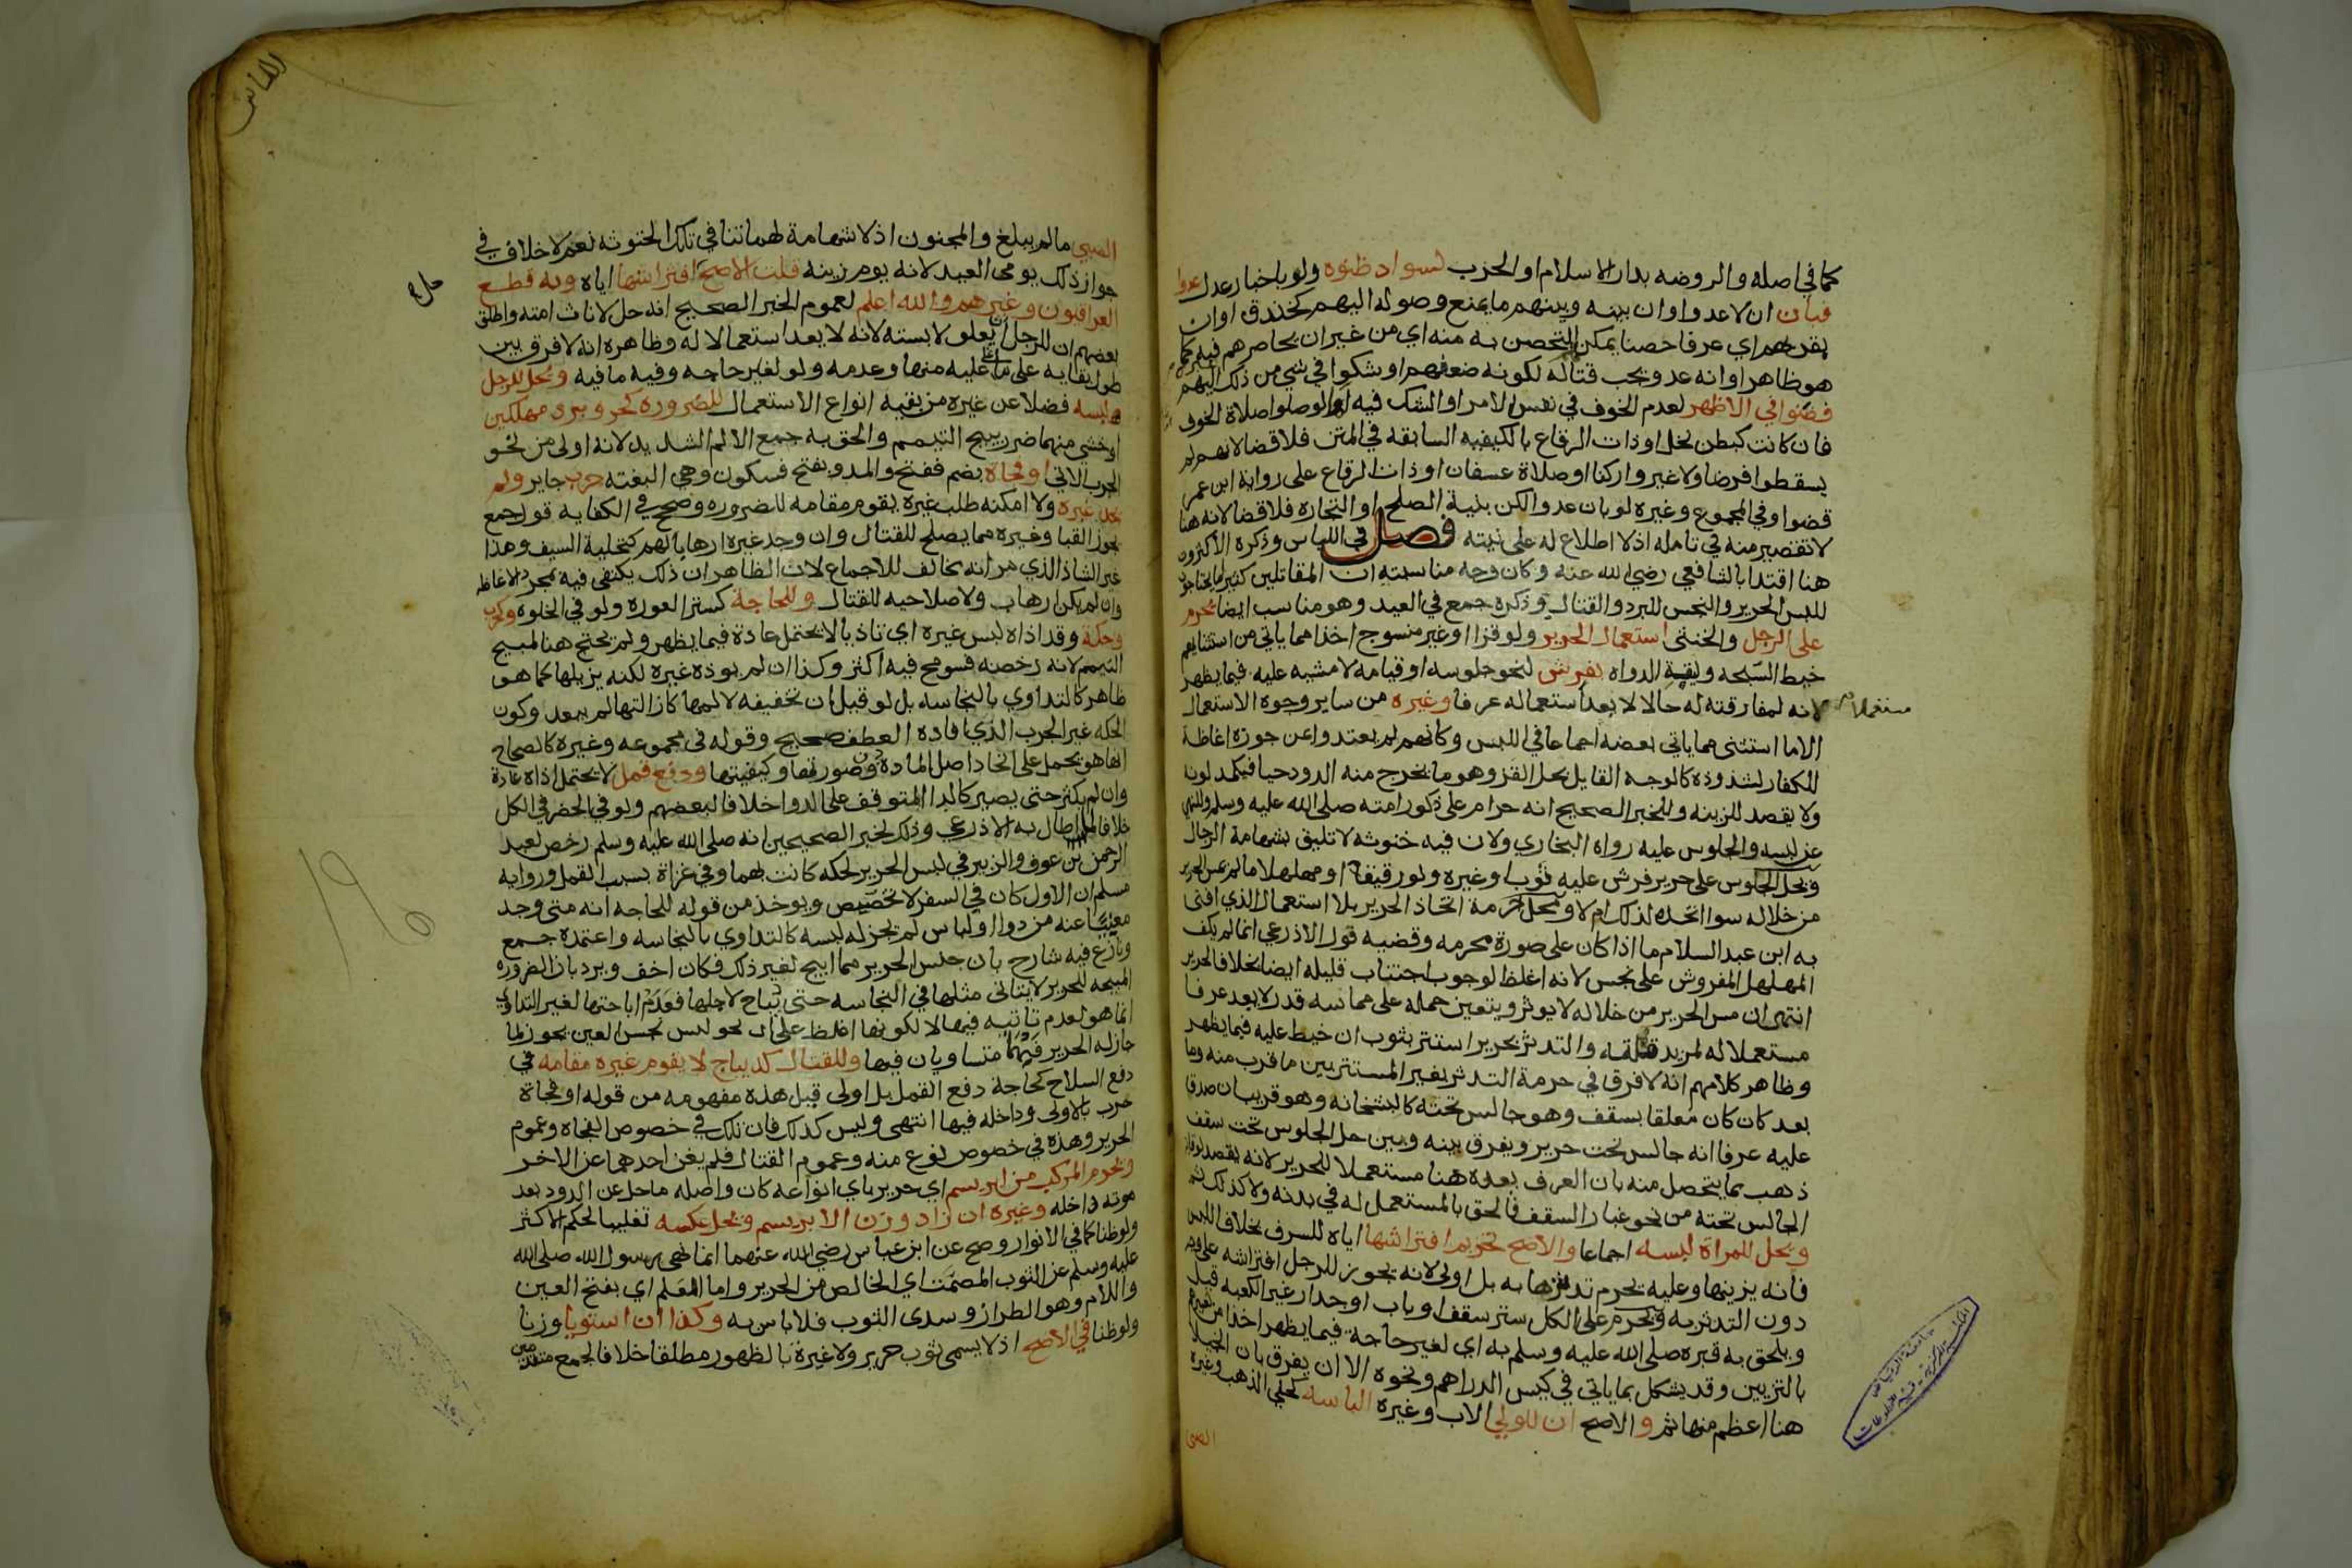 كما في اصله والروضه بدار الاسلام او الحرب لسواد ظنوه ولو باخبار عدل عدوا
فبان ان لا عدو او ان بينه وبينهم ما يمنع وصوله اليهم كخندق او ان
بقربهم اي عرفا حصنا يمكن التحصن به منه اي من غير ان يحاصرهم فيه كما
هو ظاهر او انه عدو يجب قتاله لكونه ضعفهم او شكوا في شي من ذلك اليهم
قضوا في الاظهر لعدم الخوف في نفس الامر او الشك فيه او لو صلوا صلاة الخوف
فان كانت كبطن نخل او ذات الرقاع بالكيفيه السابقه في المتن فلا قضا لانهم لم
يسقطوا فرضا ولا غيروا ركنا او صلاة عسفان او ذات الرقاع على رواية ابن عمر
قضوا وفي المجموع وغيره لو بان عدو الكن بنية الصلح او التجاره فلا قضا لانه هنا
لا تقصير منه في تامله اذ لا اطلاع له على نيته فصل في اللباس وذكره الاكثرون
هنا اقتدا بالشافعي رضي الله عنه وكان وجه مناسبته ان المقاتلين كثيرا ما يحتاجون
للبس الحرير والنجس للبرد والقتال وذكره جمع في العيد وهو مناسب ايضا يحرم
على الرجل والخنثى استعمال الحرير ولو قزا او غير منسوج اخذا مما ياتي من استثنايهم
خيط السبحه وليقة الدواه بفرش لنحو جلوسه او قيامه لا مشيه عليه فيما يظهر
لانه لمفارقته له حالا لا يعد استعماله عرفا وغيره من ساير وجوه الاستعمال
مستعملا
الا ما استثنى مما ياتي بعضه اجماعا في اللبس وكانهم لم يعتدوا عن جوزه اغاظة
للكفار لشذوذه كالوجه القايل بحل القز وهو ما يخرج منه الدود حيا فيكمد لونه
ولا يقصد للزينه وللخبر الصحيح انه حرام على ذكور امته صلى الله عليه وسلم وللنهي
عن لبسه والجلوس عليه رواه البخاري ولان فيه خنوثه لا تليق بشهامة الرجال
ويحل الجلوس على حرير فرش عليه ثوب او غيره ولو رقيقا او مهلهلا ما لم يمس الحرير
من خلاله سوا اتخذه لذلك ام لا ومحل حرمة اتخاذ الحرير بلا استعمال الذي افتى
به ابن عبد السلام ما اذا كان على صورة محرمه وقضيه قول الاذرعي انما لم يكف
المهلهل المفروش على نجس لانه اغلظ لوجوب اجتناب قليله ايضا بخلاف الحرير
انتهى ان مس الحرير من خلاله لا يوثر ويتعين حمله على مماسه قدر لا يعد عرفا
مستعملا له لمزيد قلته والتدثر بحرير استتر بثوب ان خيط عليه فيما يظهر
وظاهر كلامهم انه لا فرق في حرمة التدثر بغير المستتر بين ما قرب منه وما
بعد كان كان معلقا بسقف وهو جالس تحته كالبشخانه وهو قريب ان صدق
عليه عرفا انه جالس تحت حرير ويفرق بينه وبين حل الجلوس تحت سقف
ذهب بما يتحصل منه بان العرف يعده هنا مستعملا للحرير لانه يقصد لوقاية
الجالس تحته من نحو غبار السقف فالحق بالمستعمل له في بدنه ولا كذلك ثم
ويحل للمراة لبسه اجماعا والاصح تحريم افتراشها اياه للسرف بخلاف اللبس
فانه يزينها وعليه يحرم تدثرها به بل اولى لانه يجوز للرجل افتراشه على وجه
دون التدثر به ويحرم على الكل ستر سقف او باب او جدار غير الكعبه قيل
ويلحق به قبره صلى الله عليه وسلم به اي لغير حاجة فيما يظهر اخذا من تعبيرهم
بالتزيين وقد يشكل بما ياتي في كيس الدراهم ونحوه الا ان يفرق بان الخيلا
هنا اعظم منها ثم والاصح ان للولي الاب وغيره الباسه لحلي الذهب وغيره
الصبي
الصبي ما لم يبلغ والمجنون اذ لا شهامة لهما تنافي تلك الخنوثه نعم لا خلاف في
جواز ذلك يومى العيد لانه يوم زينه قلت الاصح افتراشها اياه وبه قطع
العراقيون وغيرهم والله اعلم لعموم الخبر الصحيح انه حل لاناث امته واطلق
بعضهم ان للرجل ان يعلو لابسته لانه لا يعد استعمالا له وظاهره انه لا فرق بين
طول بقايه على ما عليه منها وعدمه ولو لغير حاجه وفيه ما فيه ويحل للرجل
لبسه فضلا عن غيره من بقيه انواع الاستعمال للضروره كحر وبرد مهلكين
او خشي منهما ضرر يبيح التيمم والحق به جمع الالم الشديد لانه اولى من نحو
الجرب الاتي او فجاة بضم ففتح والمد وبفتح فسكون وهي البغته حرب جاير ولم
يجد غيره ولا امكنه طلب غيره يقوم مقامه للضروره وصحح في الكفايه قول جمع
يجوز القبا وغيره مما يصلح للقتال وان وجد غيره ارهابا لهم كتحلية السيف وهذا
غير الشاذ الذي مر انه يخالف للاجماع لان الظاهر ان ذلك يكتفى فيه بمجرد الاغاظه
وان لم يكن ارهاب ولا صلاحيه للقتال وللحاجة كستر العورة ولو في الخلوه وكجرب
وحكة وقد اذاه لبس غيره اي تاذيا لا يحتمل عادة فيما يظهر ولم يحتج هنا لمبيح
التيمم لانه رخصه فسومح فيه اكثر وكذا ان لم يوذه غيره لكنه يزيلها كما هو
ظاهر كالتداوي بالنجاسه بل لو قيل ان تخفيفه لالمها كازالتها لم يبعد وكون
الحكه غير الجرب الذي افاده العطف صحيح وقوله في مجموعه وغيره كالصحاح
انها هو يحمل على اتحاد اصل الماده دون صورتها وكيفيتها ودفع قمل لا يحتمل اذاه عادة
وان لم يكثر حتى يصير كالدا المتوقف على الدوا خلافا لبعضهم ولو في الحضر في الكل
خلافا لما اطال به الاذرعي وذلك لخبر الصحيحين انه صلى الله عليه وسلم رخص لعبد
الرحمن بن عوف والزبير في لبس الحرير لحكه كانت بهما وفي غزاة بسبب القمل ورواية
مسلم ان الاول كان في السفر لا تخصيص ويوخذ من قوله للحاجه انه متى وجد
مغنيا عنه من دوا او لباس لم يجز له لبسه كالتداوي بالنجاسه واعتمده جمع
ونازع فيه شارح بان جنس الحرير مما ابيح لغير ذلك فكان اخف ويرد بان الضروره
المبيحه للحرير لا يتاتى مثلها في النجاسه حتى تباح لاجلها فعدم اباحتها لغير التداوي
انما هو لعدم تاتيه فيها لا لكونها اغلظ على ان نحو لبس نجس العين يجوز لما
جاز له الحرير فهما متساويان فيها وللقتال كديباج لا يقوم غيره مقامه في
دفع السلاح كحاجة دفع القمل بل اولى قيل هذه مفهومه من قوله او فجاة
حرب بالاولى وداخله فيها انتهى وليس كذلك فان تلك في خصوص الفجاه وعموم
الحرير وهذه في خصوص نوع منه وعموم القتال فلم يغن احدهما عن الاخر
ويحرم المركب من ابريسم اي حرير باي انواعه كان واصله ما حل عن الدود بعد
موته داخله وغيره ان زاد وزن الابريسم ويحل عكسه تغليبا لحكم الاكثر
ولو ظنا كما في الانوار وصح عن ابن عباس رضي الله عنهما انما نهى رسول الله صلى الله
عليه وسلم عن الثوب المصمت اي الخالص من الحرير واما العلم اي بفتح العين
واللام وهو الطراز وسدى الثوب فلا باس به وكذا ان استويا وزنا
ولو ظنا في الاصح اذ لا يسمى ثوب حرير ولا غيرة بالظهور مطلقا خلافا لجمع متقدمين